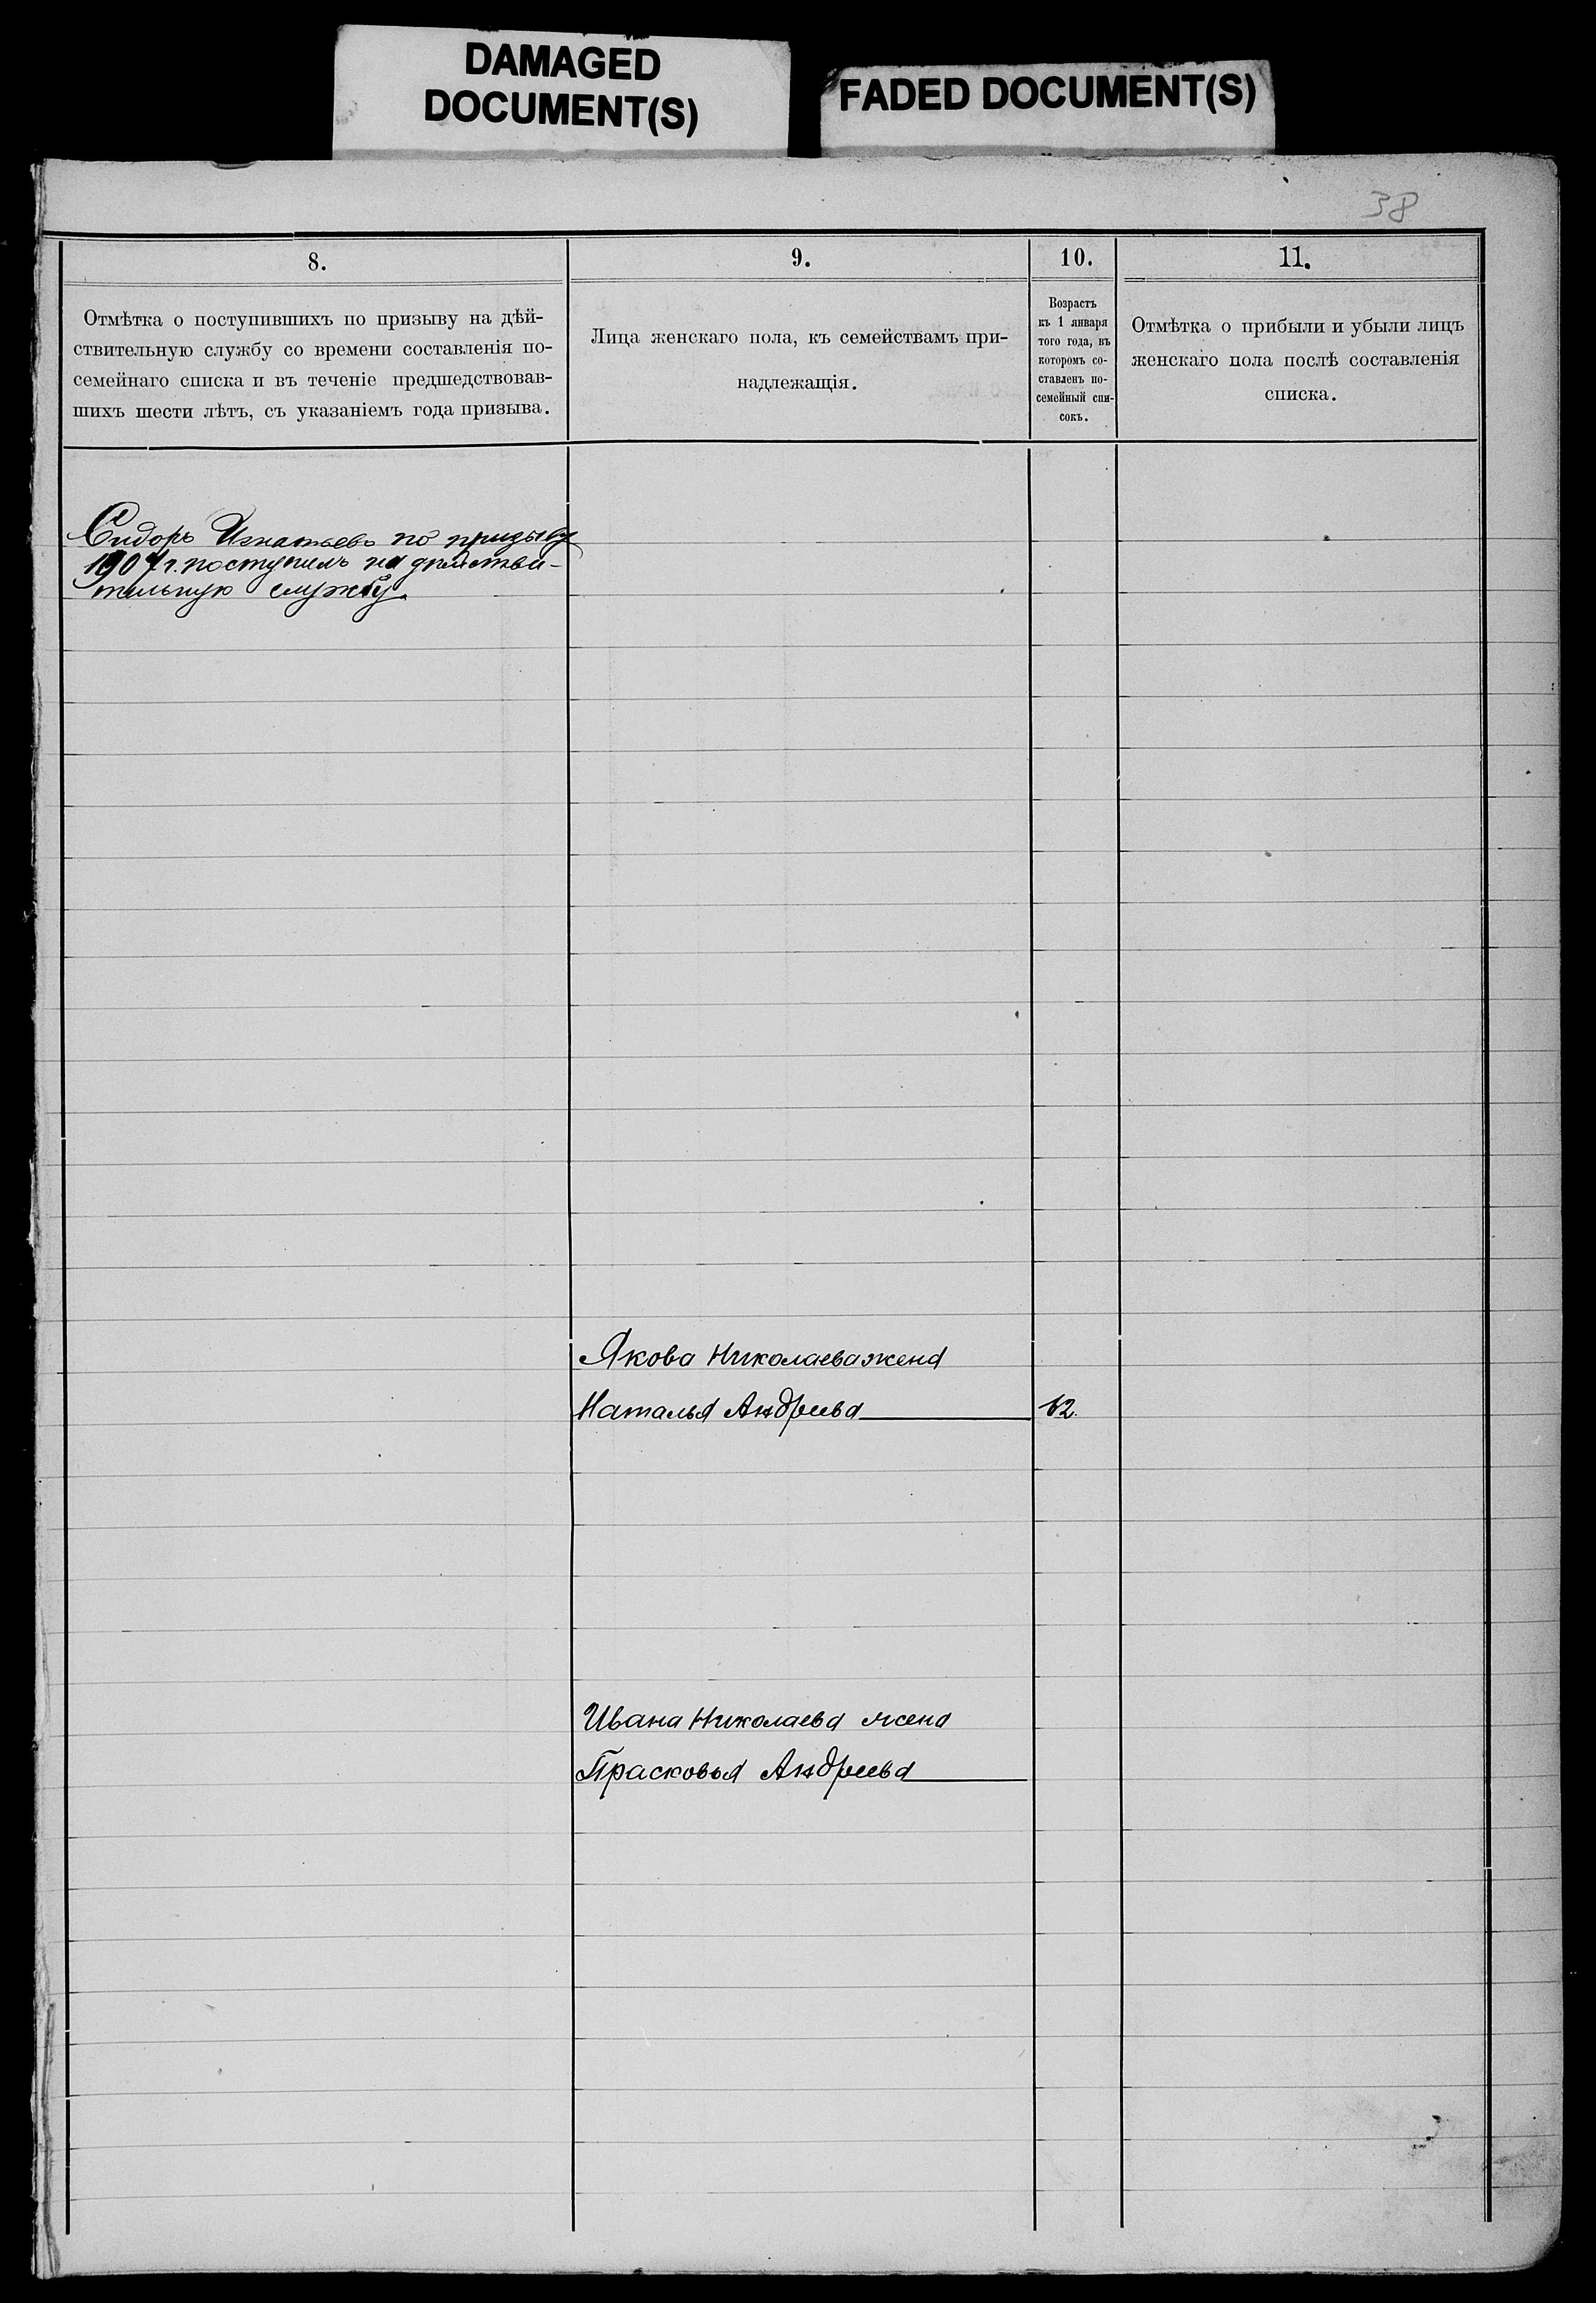 DAMAGED
DOCUMENT(S)
FADED DOCUMENT(S)
38
8.
Отмѣтка о поступившихъ по призыву на дѣй-
ствительную службу со времени составленія по-
семейнаго списка и въ теченіе предшедствовав-
шихъ шести лѣтъ, съ указаніемъ года призыва.
9.
Лица женскаго пола, къ семействамъ при-
надлежащія.
10.
Возрастъ
къ 1 января
того года, въ
которомъ со-
ставленъ по-
семейный спи-
сокъ.
11.
Отмѣтка о прибыли и убыли лицъ
женскаго пола послѣ составленія
списка.
Сидоръ Игнатьевъ по призыву
1907 г. поступилъ на дѣйстви-
тельную службу.
Якова Николаева жена
Наталья Андреева
62.
Ивана Николаева жена
Прасковья Андреева